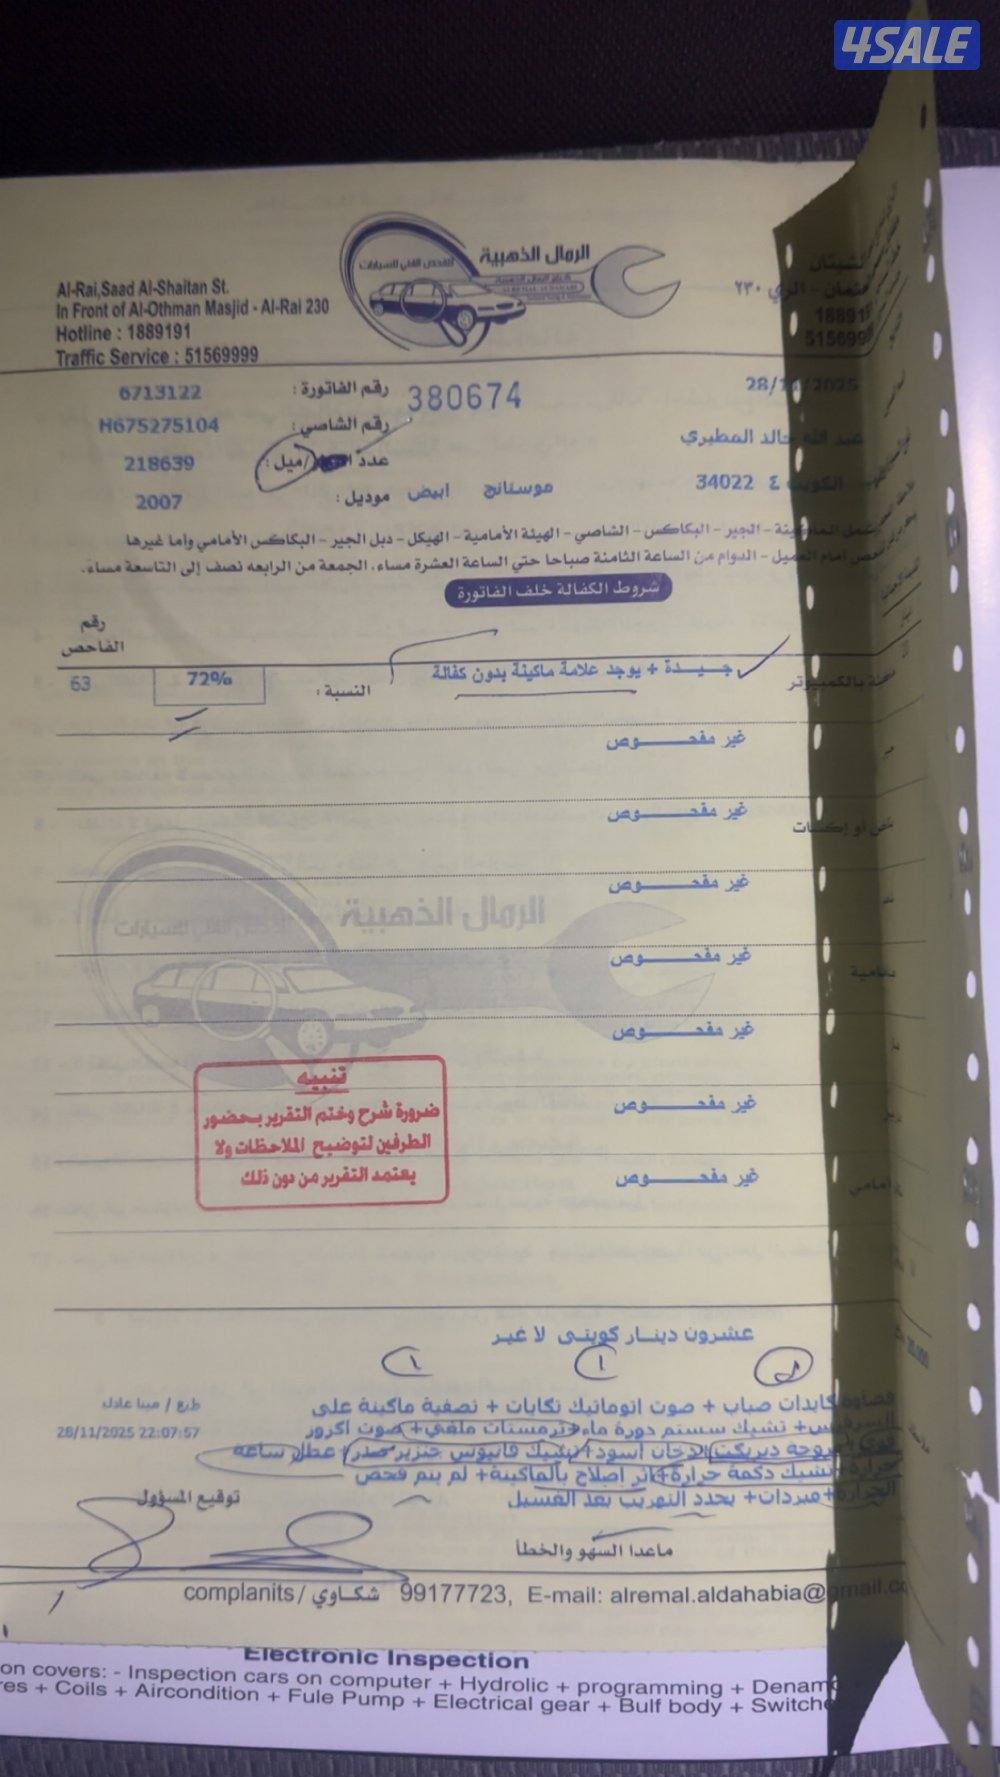 4SALE
الرمال الذهبية
الفحص الفني للسيارات
Al-Rai,Saad Al-Shaitan St.
In Front of Al-Othman Masjid - Al-Rai 230
Hotline : 1889191
Traffic Service : 51569999
الري ٢٣٠
28/11/2025
380674
رقم الفاتورة : 6713122
خالد المطيري
رقم الشاصي : H675275104
عدد /ميل : 218639
الكويت ٤ 34022
موستانج ابيض
موديل : 2007
الجير - البكاكس - الشاصي - الهيئة الأمامية - الهيكل - دبل الجير - البكاكس الأمامي وأما غيرها
الدوام من الساعة الثامنة صباحا حتي الساعة العشرة مساء. الجمعة من الرابعه نصف إلى التاسعة مساء.
شروط الكفالة خلف الفاتورة
رقم
الفاحص
بالكمبيوتر
جـيـدة + يوجد علامة ماكينة بدون كفالة
النسبة : 72%
63
غير مفحـــوص
غير مفحـــوص
غير مفحـــوص
غير مفحـــوص
غير مفحـــوص
غير مفحـــوص
غير مفحـــوص
الرمال الذهبية
تنبيه
ضرورة شرح وختم التقرير بحضور
الطرفين لتوضيح الملاحظات ولا
يعتمد التقرير من دون ذلك
عشرون دينار كويتى لا غير
كايدات صباب + صوت اتوماتيك تكايات + تصفية ماكينة على
تشيك سستم دورة ماء + ترمستات ملغي + صوت اكزوز
مروحة ديريكت الدخان اسود + تشيك فانيوس جنزير صدر + عطل ساعة
تشيك دكمة حرارة + اثر اصلاح بالماكينة + لم يتم فحص
الحرارة + مبردات + يحدد التهريب بعد الغسيل
طبع / مينا عادل
28/11/2025 22:07:57
توقيع المسؤول
ماعدا السهو والخطأ
complanits / شكاوي 99177723, E-mail: alremal.aldahabia@gmail.co
Electronic Inspection
on covers: - Inspection cars on computer + Hydrolic + programming +
+ Coils + Aircondition + Fule Pump + Electrical gear + Bulf body +